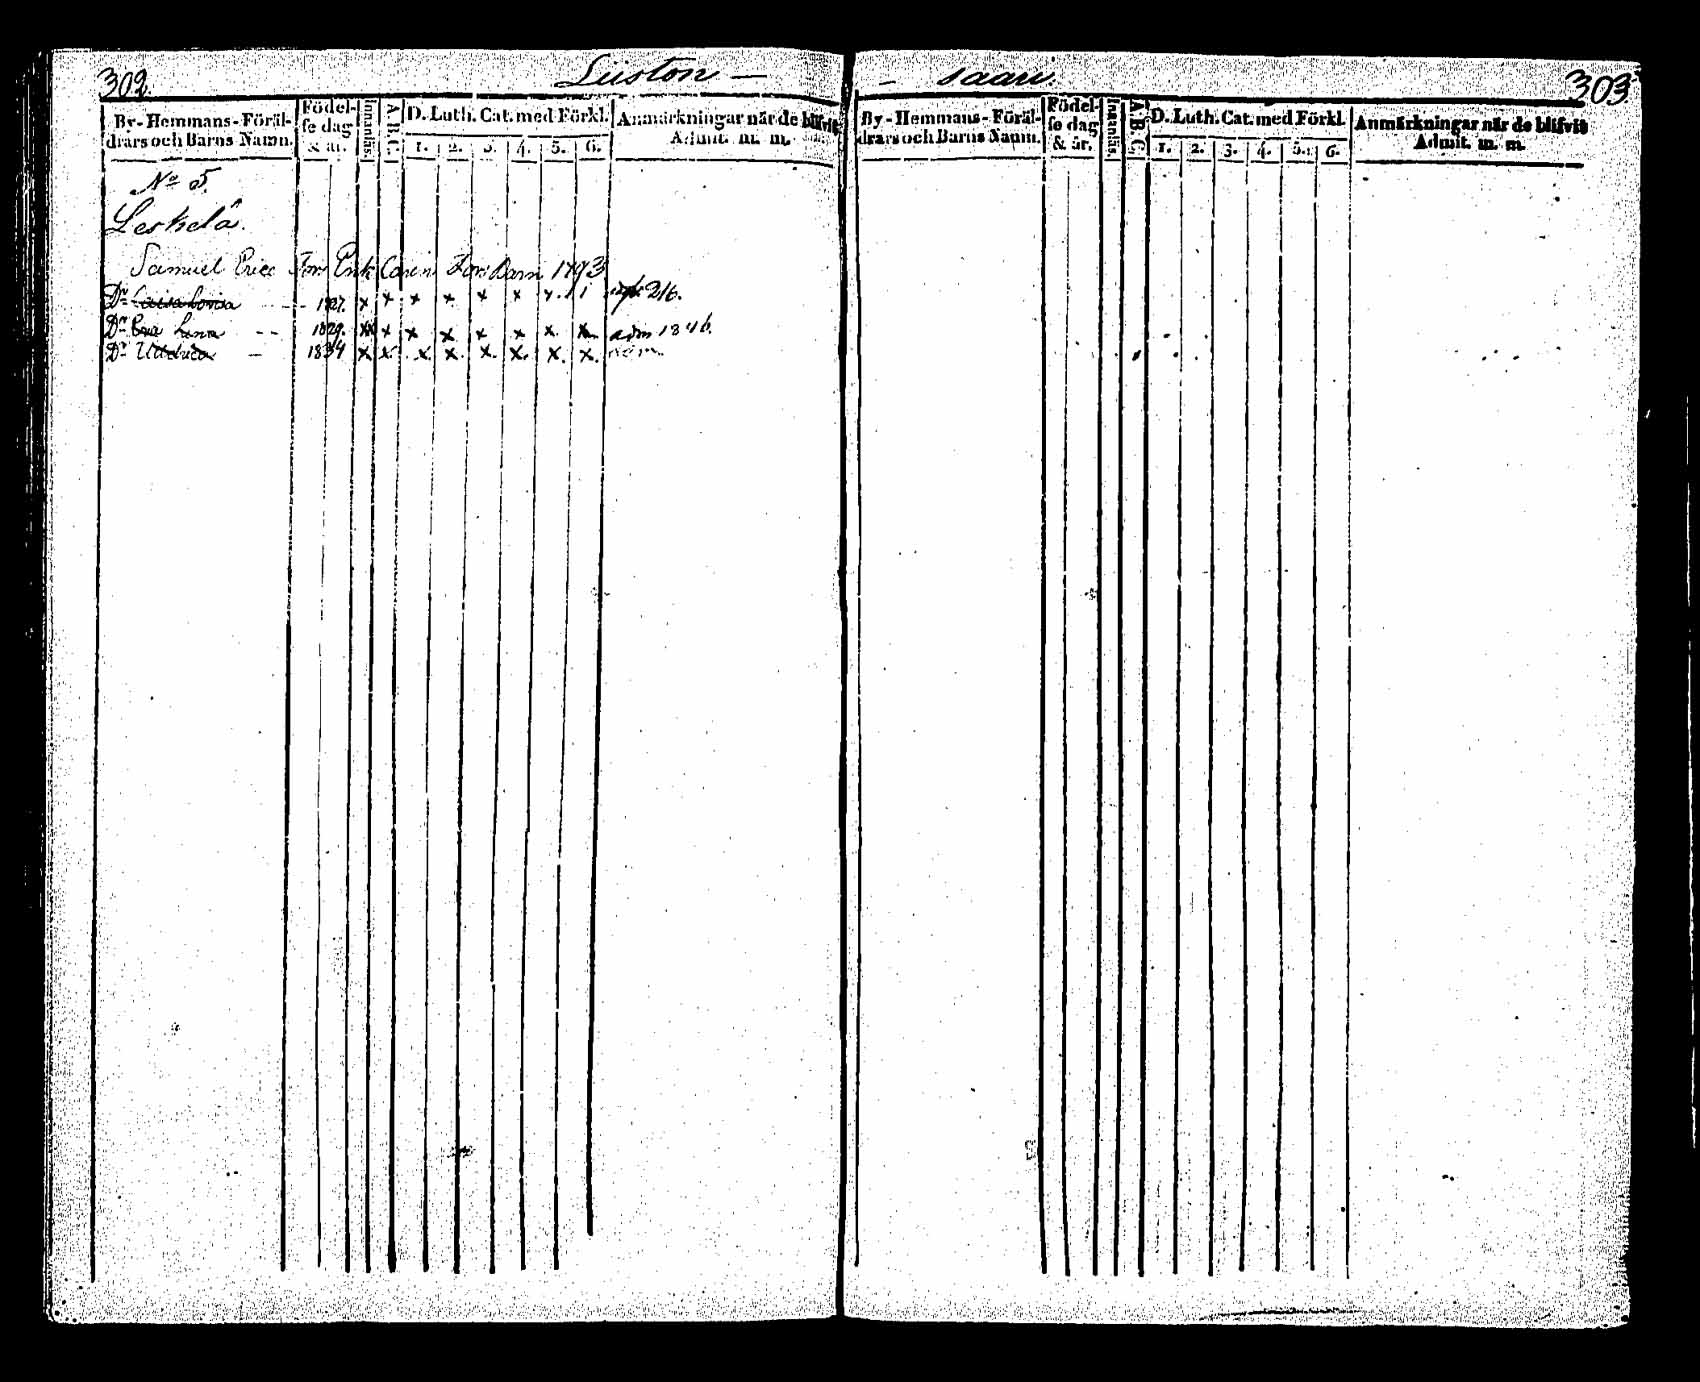 302.
Luston —
By-Hemmans-Föräl-
drars och Barns Namn.
Födel-
se dag
& år.
Innanläs.
A. B. C.
D. Luth. Cat. med Förkl.
1. 2. 3. 4. 5. 6.
Anmärkningar när de blifvit
Admit. m. m.
No 5.
Leskelä.
Samuel Erics Enk Caren Barn 1793
Dr Caisa Lovisa — 1827. x x x x x x x. 216.
Dr Eva Lena - - 1829. x x x x x x x x adm 1846.
Dr Ulrica — 1834 x x x x x x x x. adm
— saari.
303.
By-Hemmans-Föräl-
drars och Barns Namn.
Födel-
se dag
& år.
Innanläs.
A. B. C.
D. Luth. Cat. med Förkl
1. 2. 3. 4. 5. 6.
Anmärkningar när de blifvit
Admit. m. m.